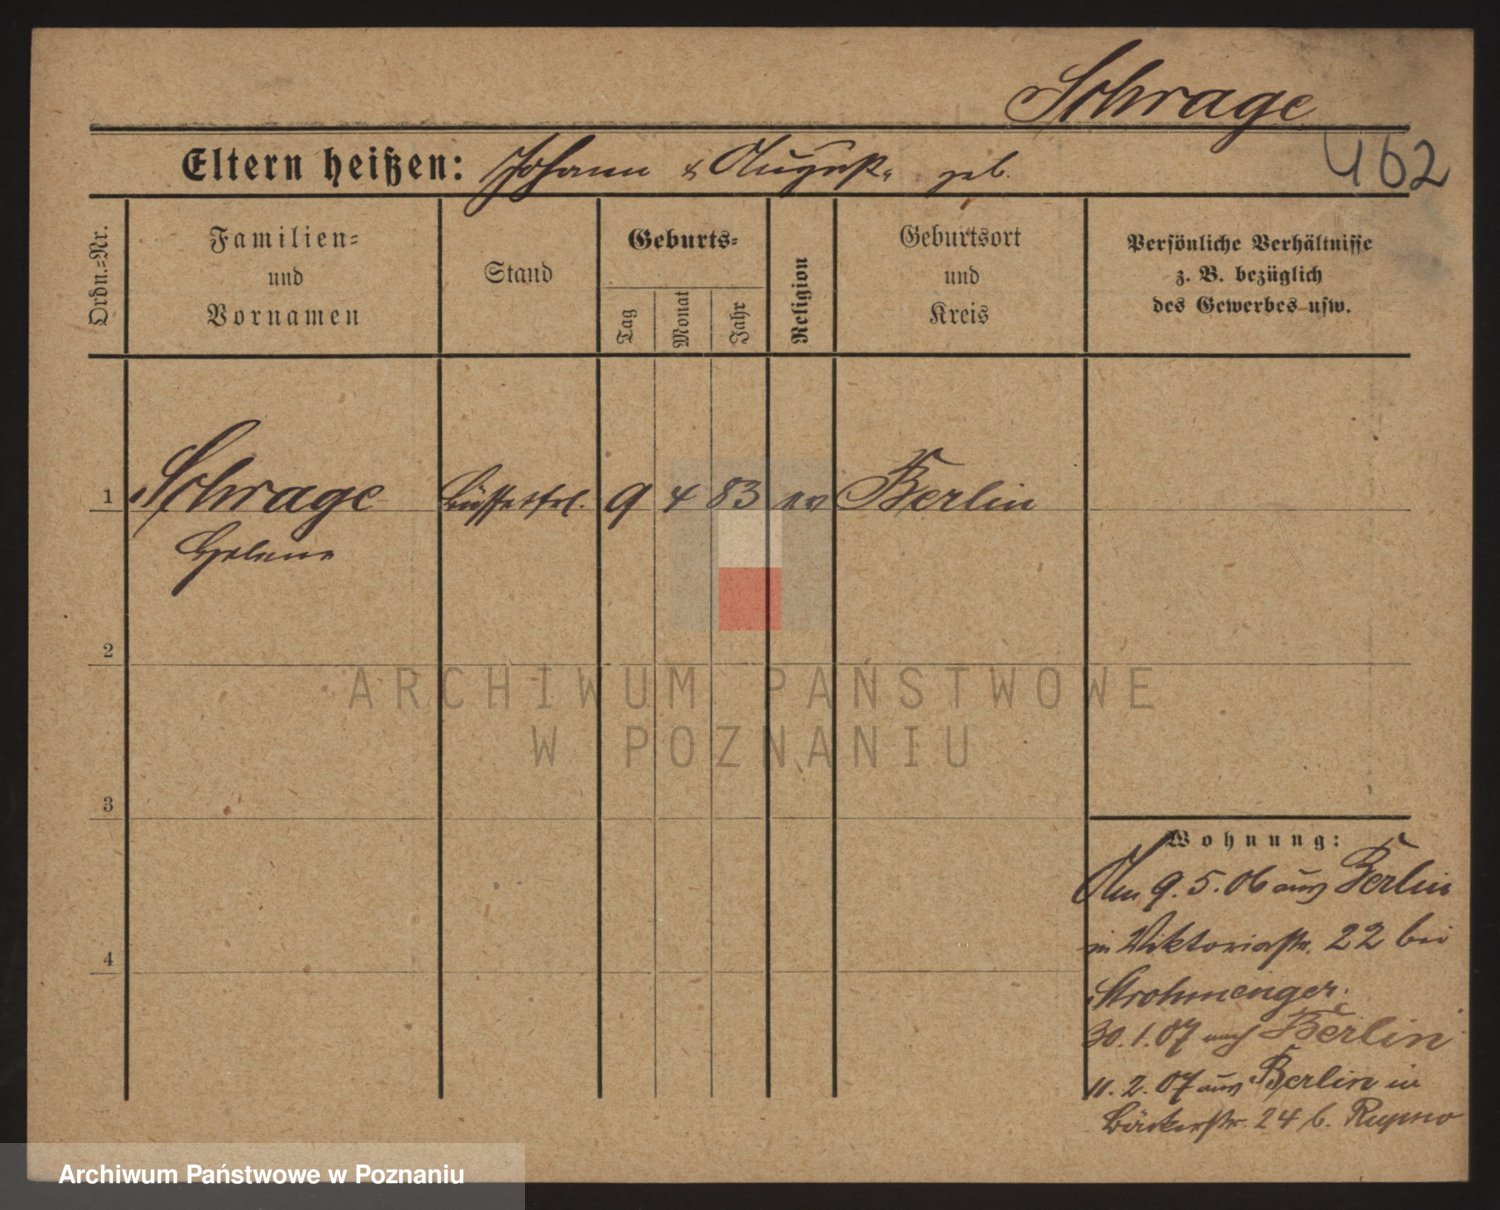 Schrage
462
Eltern heißen: Johann & August. geb.
Ordn.=Nr.
Familien=
und
Vornamen
Stand
Geburts=
Tag
Monat
Jahr
Religion
Geburtsort
und
Kreis
Persönliche Verhältnisse
z. B. bezüglich
des Gewerbes usw.
1 Schrage Büffetfrl. 9 4 83 ev Berlin
Helene
2
3
4
Wohnung:
Am 9.5.06 aus Berlin
in Viktoriastr. 22 bei
Strohmenger.
30.1.07 nach Berlin
11.2.07 aus Berlin in
Bäckerstr. 24 b.
ARCHIWUM PAŃSTWOWE
W POZNANIU
Archiwum Państwowe w Poznaniu